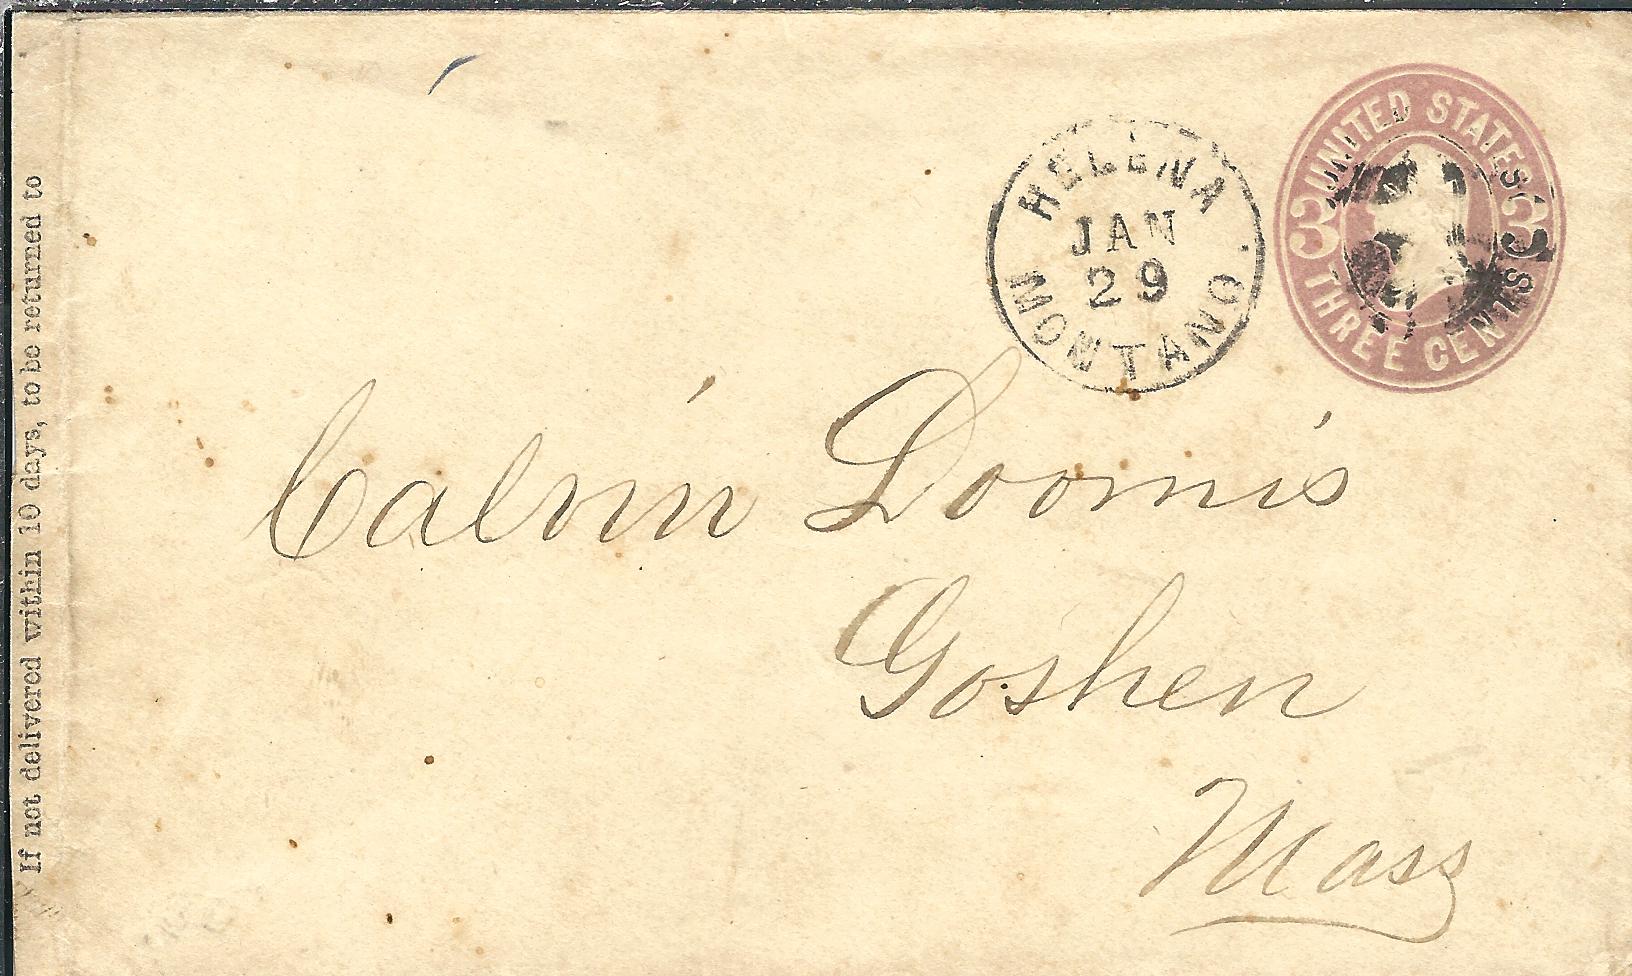 If not delivered within 10 days, to be returned to
HELENA
JAN
29
MONTANO
UNITED STATES
3 3
THREE CENTS
Calvin Loomis
Goshen
Mass